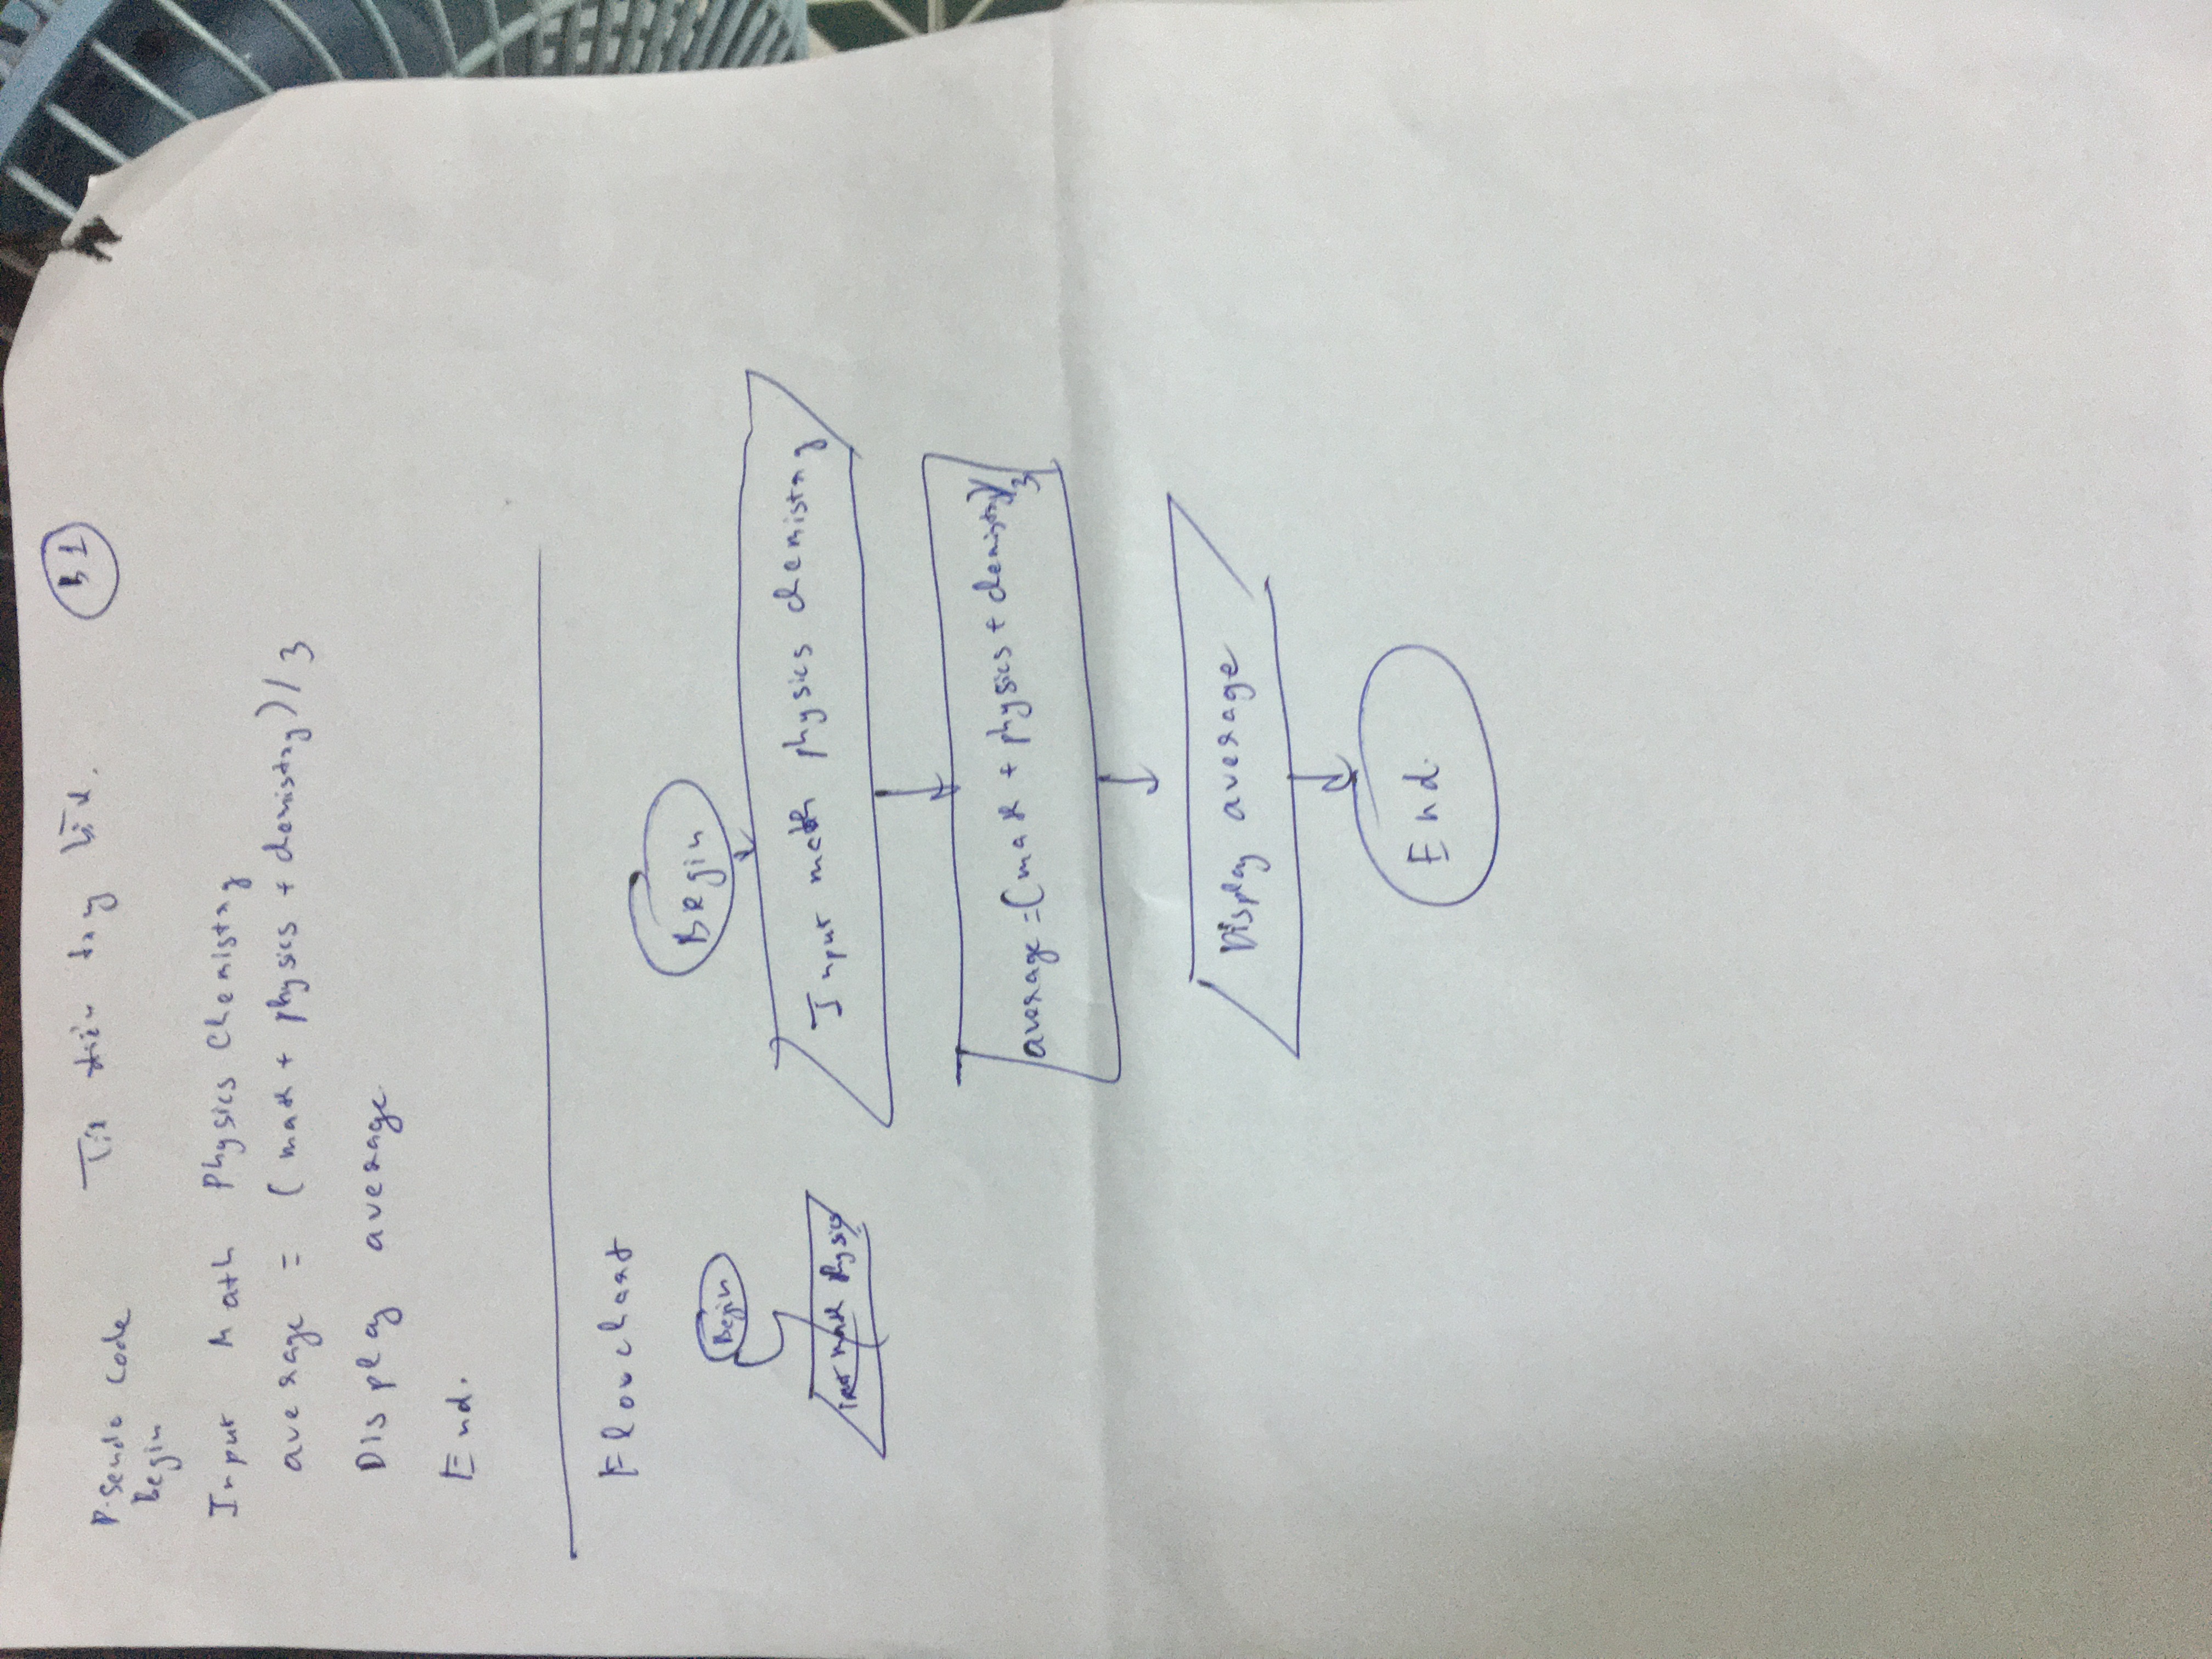 B1
Pseudo code
Begin
Input Math Physics Chemistry
average = (math + physics + chemistry) / 3
Display average
End.
Flowchart
Begin
math physics
Begin
Input math physics chemistry
average = (math + physics + chemistry)/3
Display average
End.